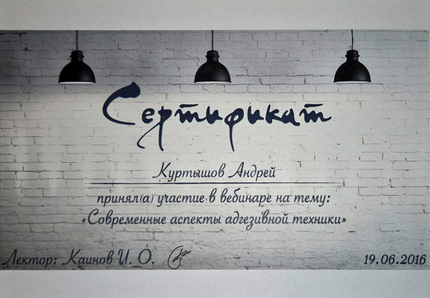 Сертификат
Куртышов Андрей
принял(а) участие в вебинаре на тему:
«Современные аспекты адгезивной техники»
Лектор: Каинов И. О.
19.06.2016